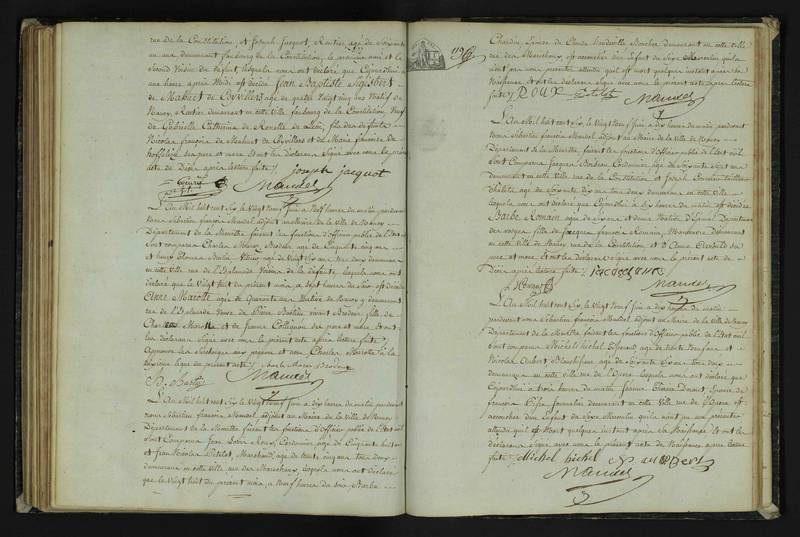 rue de la Constitution, et Joseph Jacquot, Rentier, agé de Soixante
un ans demeurant faubourg de la Constitution, le premier ami et le
Second Voisin du défunt, lesquels nous ont déclaré que Cejourd'hui à
une heure après Midi est décédé Jean Baptiste Sigisbert
de Mahuet de Coyviller agé de quatre Vingt cinq ans Natif de
Nancy, Rentier demeurant en cette ville faubourg de la Constitution, Veuf
de Gabrielle Catherine de
Nicolas françois de Mahuet de Coyviller et de Marie françoise de
ses père et mère. Et ont les déclarans Signé avec nous le présent
acte de Décès, après lecture faite. Joseph Jacquot
Mandel
L'An Mil huit cent Six, le Vingt Neuf Juin à Neuf heures du matin, pardevant
Nous Sébastien françois Mandel, adjoint au Maire de la Ville de Nancy
Département de la Meurthe, faisant les fonctions d'Officier public de l'Etat civil
Sont comparus Charles Brodeur agé de Cinquante cinq ans
et agé de Vingt Six ans tous deux demeurant
en cette Ville rue de l'Esplanade Voisins de la défunte, lesquels nous ont
déclaré que le Vingt huit du présent mois, à Sept heures du Soir est décédée
Anne Marotte agée de Quarante ans Native de Nancy y demeurant
rue de l'Esplanade, Veuve de Pierre vivant Brodeur, fille de
Charles Marotte et de Jeanne Collignon Ses père et mère. Et ont
les déclarans Signé avec nous le présent acte après lecture faite.
Approuvé les Surcharges aux prénom et nom Charles Marotte à la
dixième ligne du présent acte.
Mandel
L'An Mil huit cent Six, le Vingt Neuf Juin à dix heures du matin, pardevant
Nous Sébastien françois Mandel, adjoint au Maire de la Ville de Nancy
Département de la Meurthe faisant les fonctions d'Officier public de l'Etat civil
Sont Comparus Jean Louis Roux, Cordonnier, agé de Cinquante huit ans
et Jean Nicolas Petelot, Marchand, agé de trente cinq ans tous deux
demeurans en cette Ville rue des Marechaux, lesquels nous ont déclaré
que le Vingt huit du présent mois, à Neuf heures du Soir Barbe
1136
Chardin Epouse de Claude Boucher demeurant en cette ville
rue des Marechaux, est accouchée d'un Enfant du Sexe Masculin qu'ils
n'ont pu nous présenter attendu qu'il est mort quelques instans après sa
Naissance. Et ont les déclarans Signé avec nous le présent acte après lecture
faite. J L ROUX Petelot
Mandel
L'An Mil huit cent Six, le Vingt Neuf Juin, à dix heures du matin pardevant
Nous Sébastien françois Mandel, adjoint au Maire de la Ville de Nancy
Département de la Meurthe, faisant les fonctions d'Officier public de l'Etat civil
Sont Comparus Jacques Cordonnier, agé de Soixante Sept ans
demeurant en cette ville rue de la Constitution, et Joseph
agé de Soixante dix ans tous deux demeurans en cette Ville
lesquels nous ont déclaré que Cejourd'hui à Six heures du matin est décédée
Barbe Romain agée de Soixante et douze Native d'Epinal Département
des Vosges, fille de Jacques françois Romain, Manœuvre Demeurant
en cette ville de Nancy rue de la Constitution, et d'Anne
père et mère. Et ont les déclarans Signé avec nous le présent acte de
Décès après lecture faite.
Mandel
L'An Mil huit cent Six, le Vingt Neuf Juin, à dix heures du matin
pardevant nous Sébastien françois Mandel, adjoint au Maire de la Ville de Nancy
Département de la Meurthe, faisant les fonctions d'Officier public de l'Etat civil
Sont comparus Michel hichel, agé de trente Neuf ans et
Nicolas Aubert agé de Soixante Six ans tous deux
demeurans en cette ville rue de l'Opera, lesquels nous ont déclaré que
Cejourd'hui à trois heures du matin Jeanne Thérèse Epouse de
françois demeurant en cette Ville rue de l'Opera est
accouchée d'un Enfant du Sexe Masculin qu'ils n'ont pu nous présenter
attendu qu'il est Mort quelques instans après sa Naissance. Et ont les
déclarans Signé avec nous le présent acte de Naissance après lecture
faite. Michel hichel N aubert
Mandel